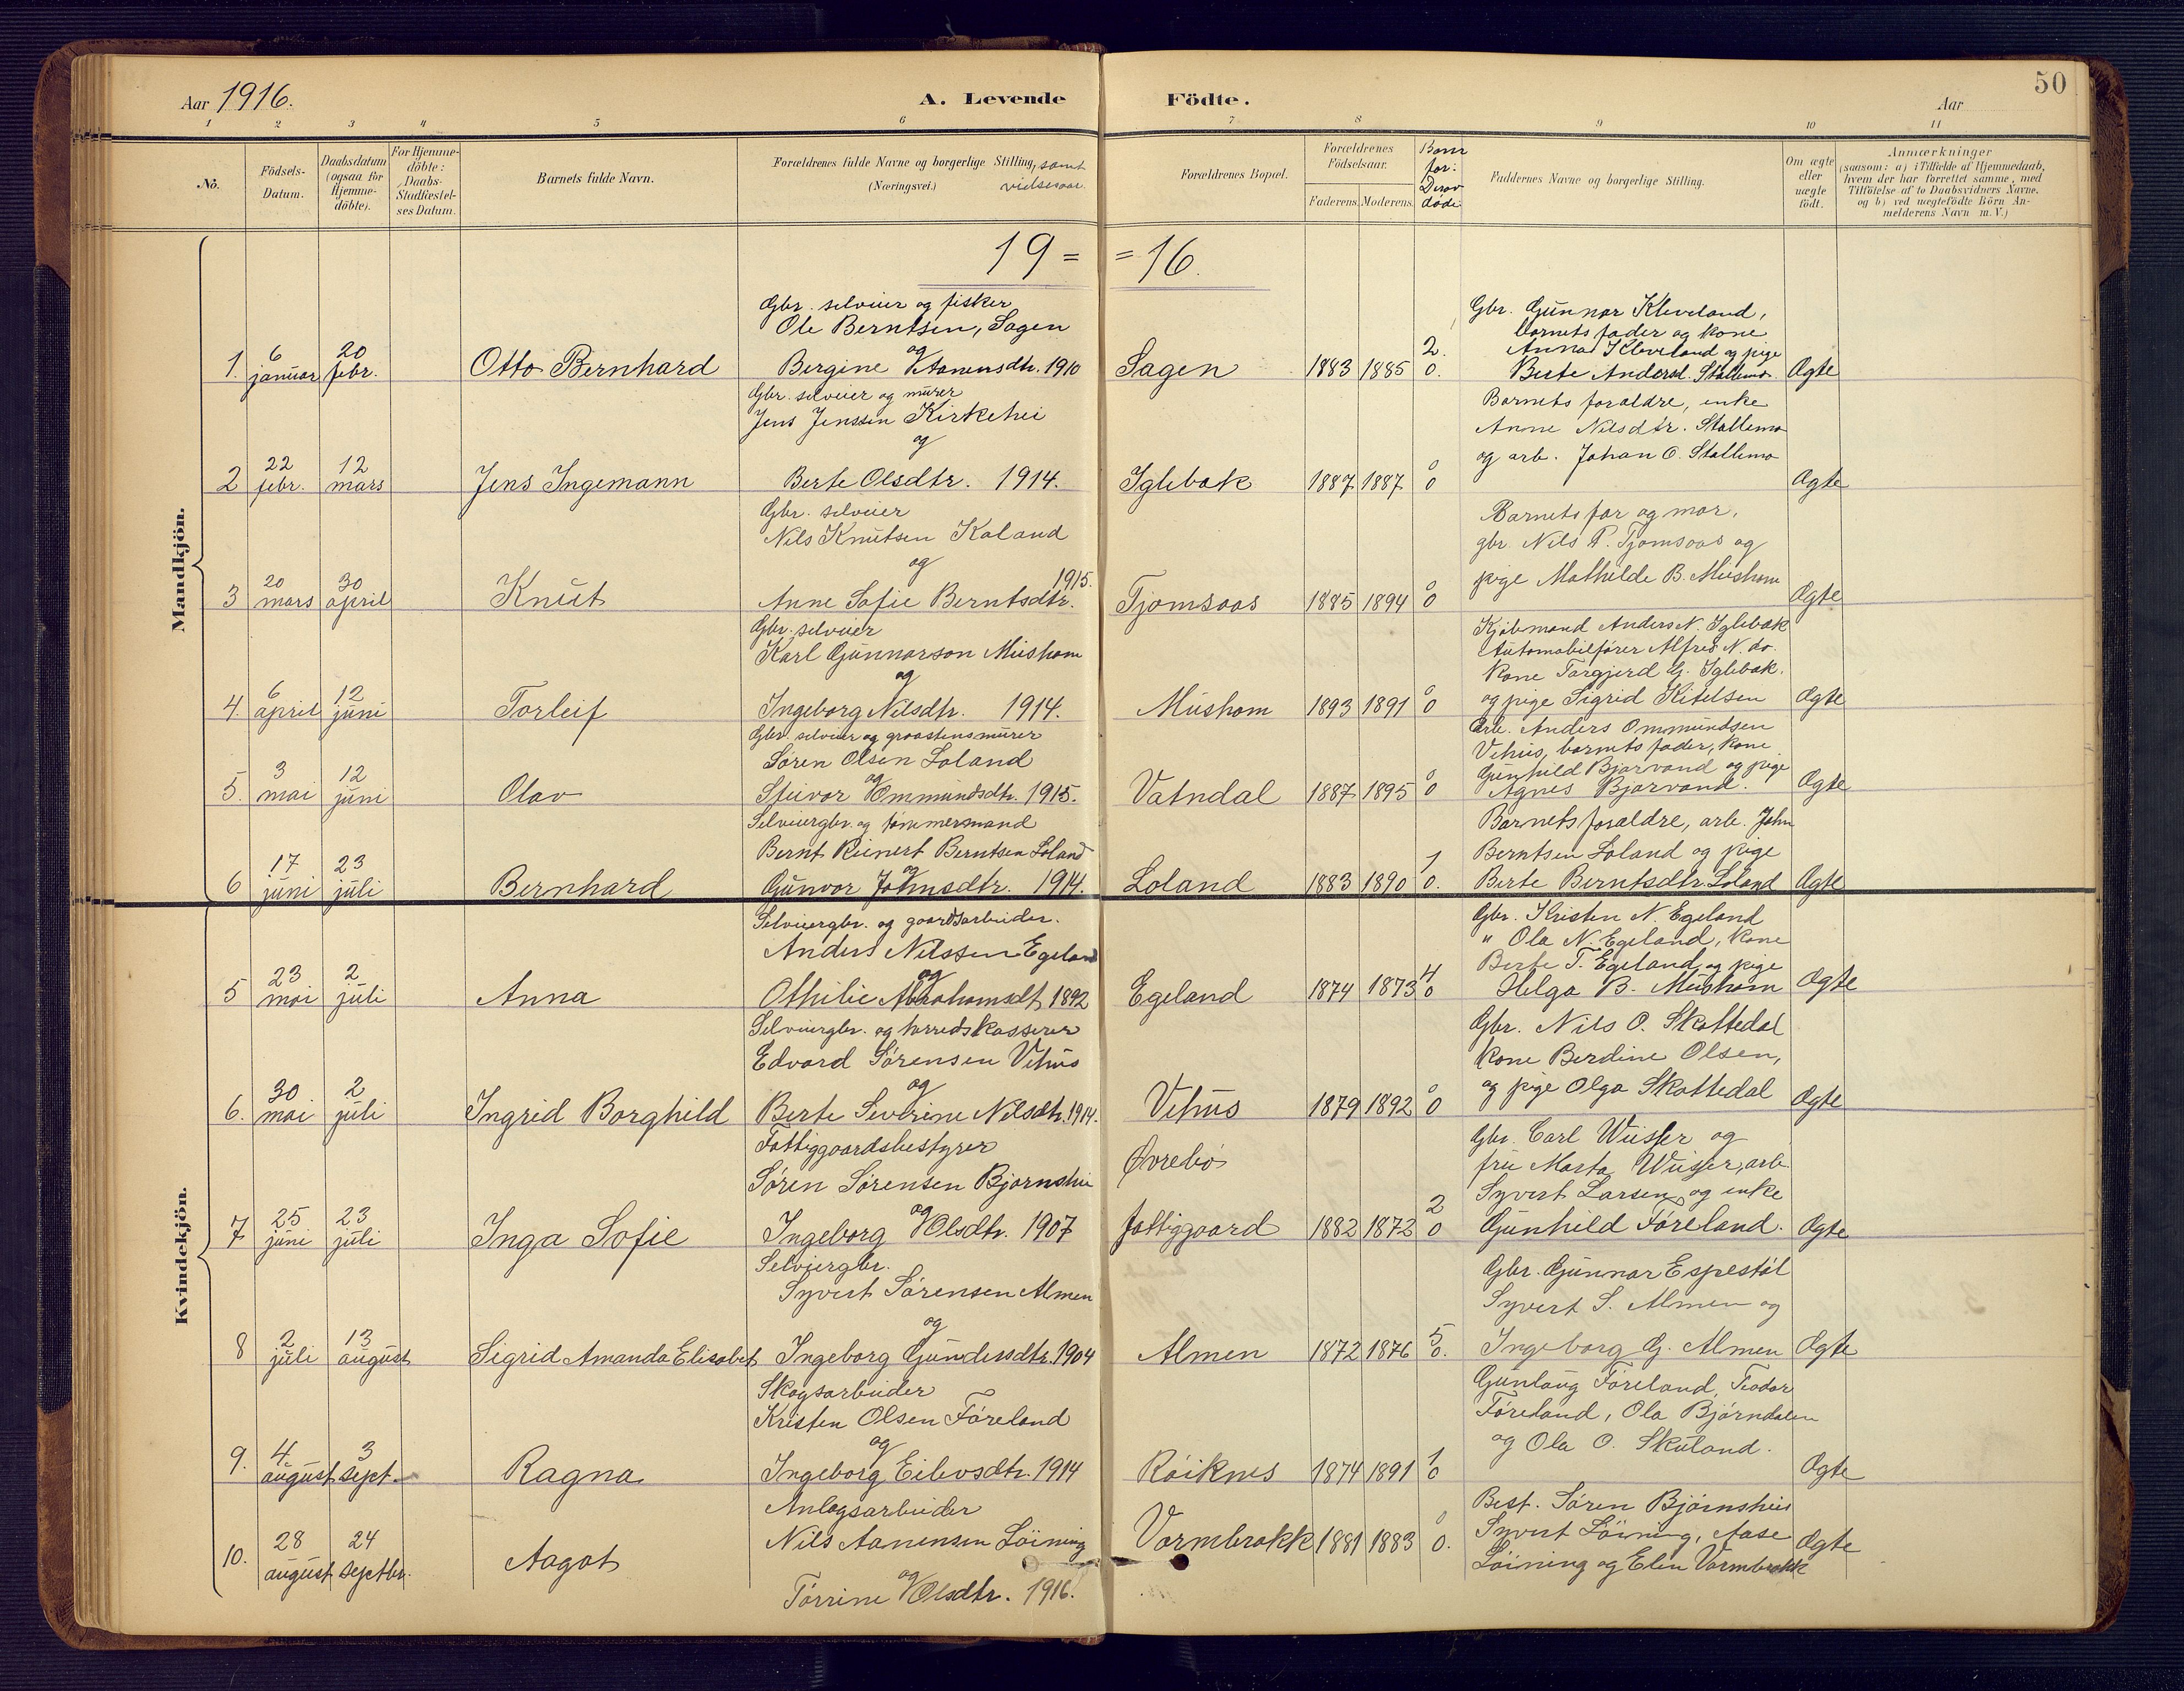 50
Aar 1916.
A. Levende Födte.
Aar
1 2 3 4 5 6 7 8 9 10 11
No.
Födsels-
Datum.
Daabsdatum
(ogsaa for
Hjemme-
döbte).
For Hjemme-
döbte:
Daabs-
Stadfæstel-
ses Datum.
Barnets fulde Navn.
Forældrenes fulde Navne og borgerlige Stilling, samt
(Næringsvei.) vielsesaar.
Forældrenes Bopæl.
Forældrenes
Födselsaar.
Faderens. Moderens.
Børn
før:
Derav
døde
Faddernes Navne og borgerlige Stilling.
Om ægte
eller
uægte
födt.
Anmærkninger
(saasom: a) i Tilfælde af Hjemmedaab,
hvem der har forrettet samme, med
Tilföielse af to Daabsvidners Navne,
og b) ved uægtefödte Börn An-
melderens Navn m. V.)
19 = = 16.
Mandkjön.
1.
6
januar
20
febr.
Otto Bernhard
Gbr. selveier og fisker
Ole Berntsen, Sagen
og
Bergine Aanensdtr. 1910
Sagen
1883 1885
2.
0.
Gbr. Gunnar Kleveland,
barnets fader og kone
Anna Kleveland og pige
Berte Andersd. Stallemo
Ægte
2
22
febr.
12
mars
Jens Ingemann
Gbr. selveier og murer
Jens Jenssen Kirkehei
og
Berte Olsdtr. 1914.
Iglebæk
1887 1887
0
0
Barnets forældre, enke
Anne Nilsdtr. Stallemo
og arb. Johan O. Stallemo
Ægte
3
20
mars
30
april
Knut
Gbr. selveier
Nils Knutsen Kaland
og
1915.
Anne Sofie Berntsdtr.
Tjomsaas
1885 1894
0
0
Barnets far og mor,
gbr. Nils P. Tjomsaas og
pige Mathilde B. Mushom
Ægte
4
6
april
12
juni
Torleif
Gbr. selveier
Karl Gunnarson Mushom
og
Ingeborg Nilsdtr. 1914.
Mushom
1893 1891
0
0
Kjøbmand Anders N. Iglebæk
Automobilfører Alfred N. do.
kone Torgjerd G. Iglebæk.
og pige Sigrid Kitelsen
Ægte
5.
3
mai
12
juni
Olav
Gbr. selveier og graastensmurer
Søren Olsen Loland
og
Steivor Ommundsdtr. 1915.
Vatndal
1887 1895
0
0
Arb. Anders Ommundsen
Vehus, barnets fader, kone
Gunhild Bjørvand og pige
Agnes Bjorvand.
Ægte
6
17
juni
23
juli
Bernhard
Selveiergbr. og tømmermand
Bernt Reinert Berntsen Loland
og
Gunvor Johnsdtr. 1914.
Loland
1883 1890
1
0.
Barnets forældre, arb. John
Berntsen Loland og pige
Berte Berntsdtr. Loland
Ægte
Kvindekjön.
5
23
mai
2
juli
Anna
Selveiergbr. og gaardsarbeider.
Anders Nilssen Egeland
og
Othilie Abrahamsdt. 1892
Egeland
1874 1873
4
0
Gbr. Kristen N. Egeland
" Ola N. Egeland, kone
Berte T. Egeland og pige
Helga B. Mushom
Ægte
6.
30
mai
2
juli
Ingrid Borghild
Selveiergbr. og herredskasserer
Edvard Sørensen Vehus
og
Berte Severine Nilsdtr. 1914.
Vehus
1879 1892
0
0
Gbr. Nils O. Skattedal
kone Berdine Olsen,
og pige Olga Skattedal
Ægte
7
25
juni
23
juli
Inga Sofie
Fattiggaardsbestyrer
Søren Sørensen Bjørnshei
og
Ingeborg Olsdtr. 1907
Øvrebø
fattiggaard
1882 1872
2
0
Gbr. Carl Wusser og
fru Marta Wusser, arb.
Syvert Larsen og enke
Gunhild Føreland.
Ægte
8
2
juli
13
august
Sigrid Amanda Elisabet
Selveiergbr.
Syvert Sørensen Almen
og
Ingeborg Gundersdtr. 1904
Almen
1872 1876
5
0.
Gbr. Gunnar Espestøl
Syvert S. Almen og
Ingeborg G. Almen
Ægte
9.
4
august
3
sept.
Ragna
Skogsarbeider
Kristen Olsen Føreland
og
Ingeborg Eilevsdtr. 1914
Røiknes
1874 1891
1
0
Gunlaug Føreland, Teodor
Føreland, Ola Bjørndalen
og Ola O. Skuland.
Ægte
10.
28
august
24
septbr.
Aagot
Anlægsarbeider
Nils Aanensen Løining
og
Tørrine Olsdtr. 1916.
Varmbrokk
1881 1883
0
0.
Best. Søren Bjørnshei
Syvert Løining, Aase
Løining og Elen Varmbrokk
Ægte